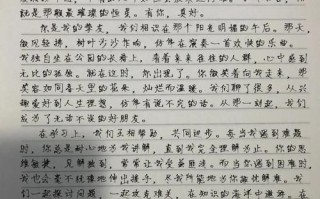 就是那颗最璀璨的恒星。有你，真好。
你是我的挚友，我们相识在那个阳光明媚的午后。那天
微风轻拂，树叶沙沙作响，仿佛在演奏一首欢快的乐曲。
我独自坐在公园的长椅上，看着来来往往的人群，心中感到
无比的孤独。就在这时，你出现了。你微笑着向我走来，那
笑容如同春天里的花朵，灿烂而温暖。我们聊了很多，从兴
趣爱好到人生理想，仿佛有说不完的话。从那一刻起，我们
成为了无话不说的好朋友。
在学习上，我们互相帮助，共同进步。每当我遇到难题
时，你总是耐心地为我讲解，直到我完全理解为止。你的思
维敏捷，见解独到，常常让我茅塞顿开。而当你遇到困难时
我也会毫不犹豫地伸出援手，尽我所能地为你排忧解难。我
们一起探讨问题，一起攻克难关，在知识的海洋中遨游。在